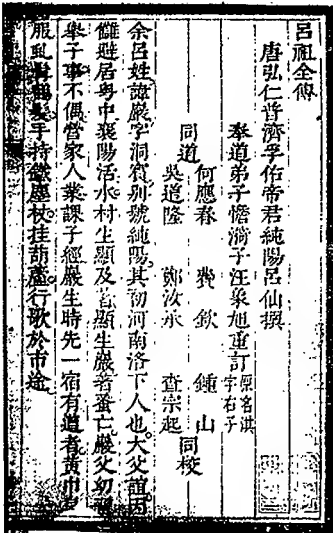 呂祖全傳
唐弘仁普濟孚佑帝君純陽呂仙撰
奉道弟子憺漪子汪象旭重訂 原名淇字右子
何應春 費欽 鍾山
同道 同校
吳道隆 鄭汝承 查宗起
余呂姓諱巖字洞賓别號純陽其初河南洛下人也大父誼因
讎避居粤中襄陽活水村生顯及顯生巖蚤亡巖父幼
舉子事不偶營家人業課子經巖生時先一宿有道者黄巾
服虬髯鶴髮手持鐵塵杖挂葫蘆行歌於市途